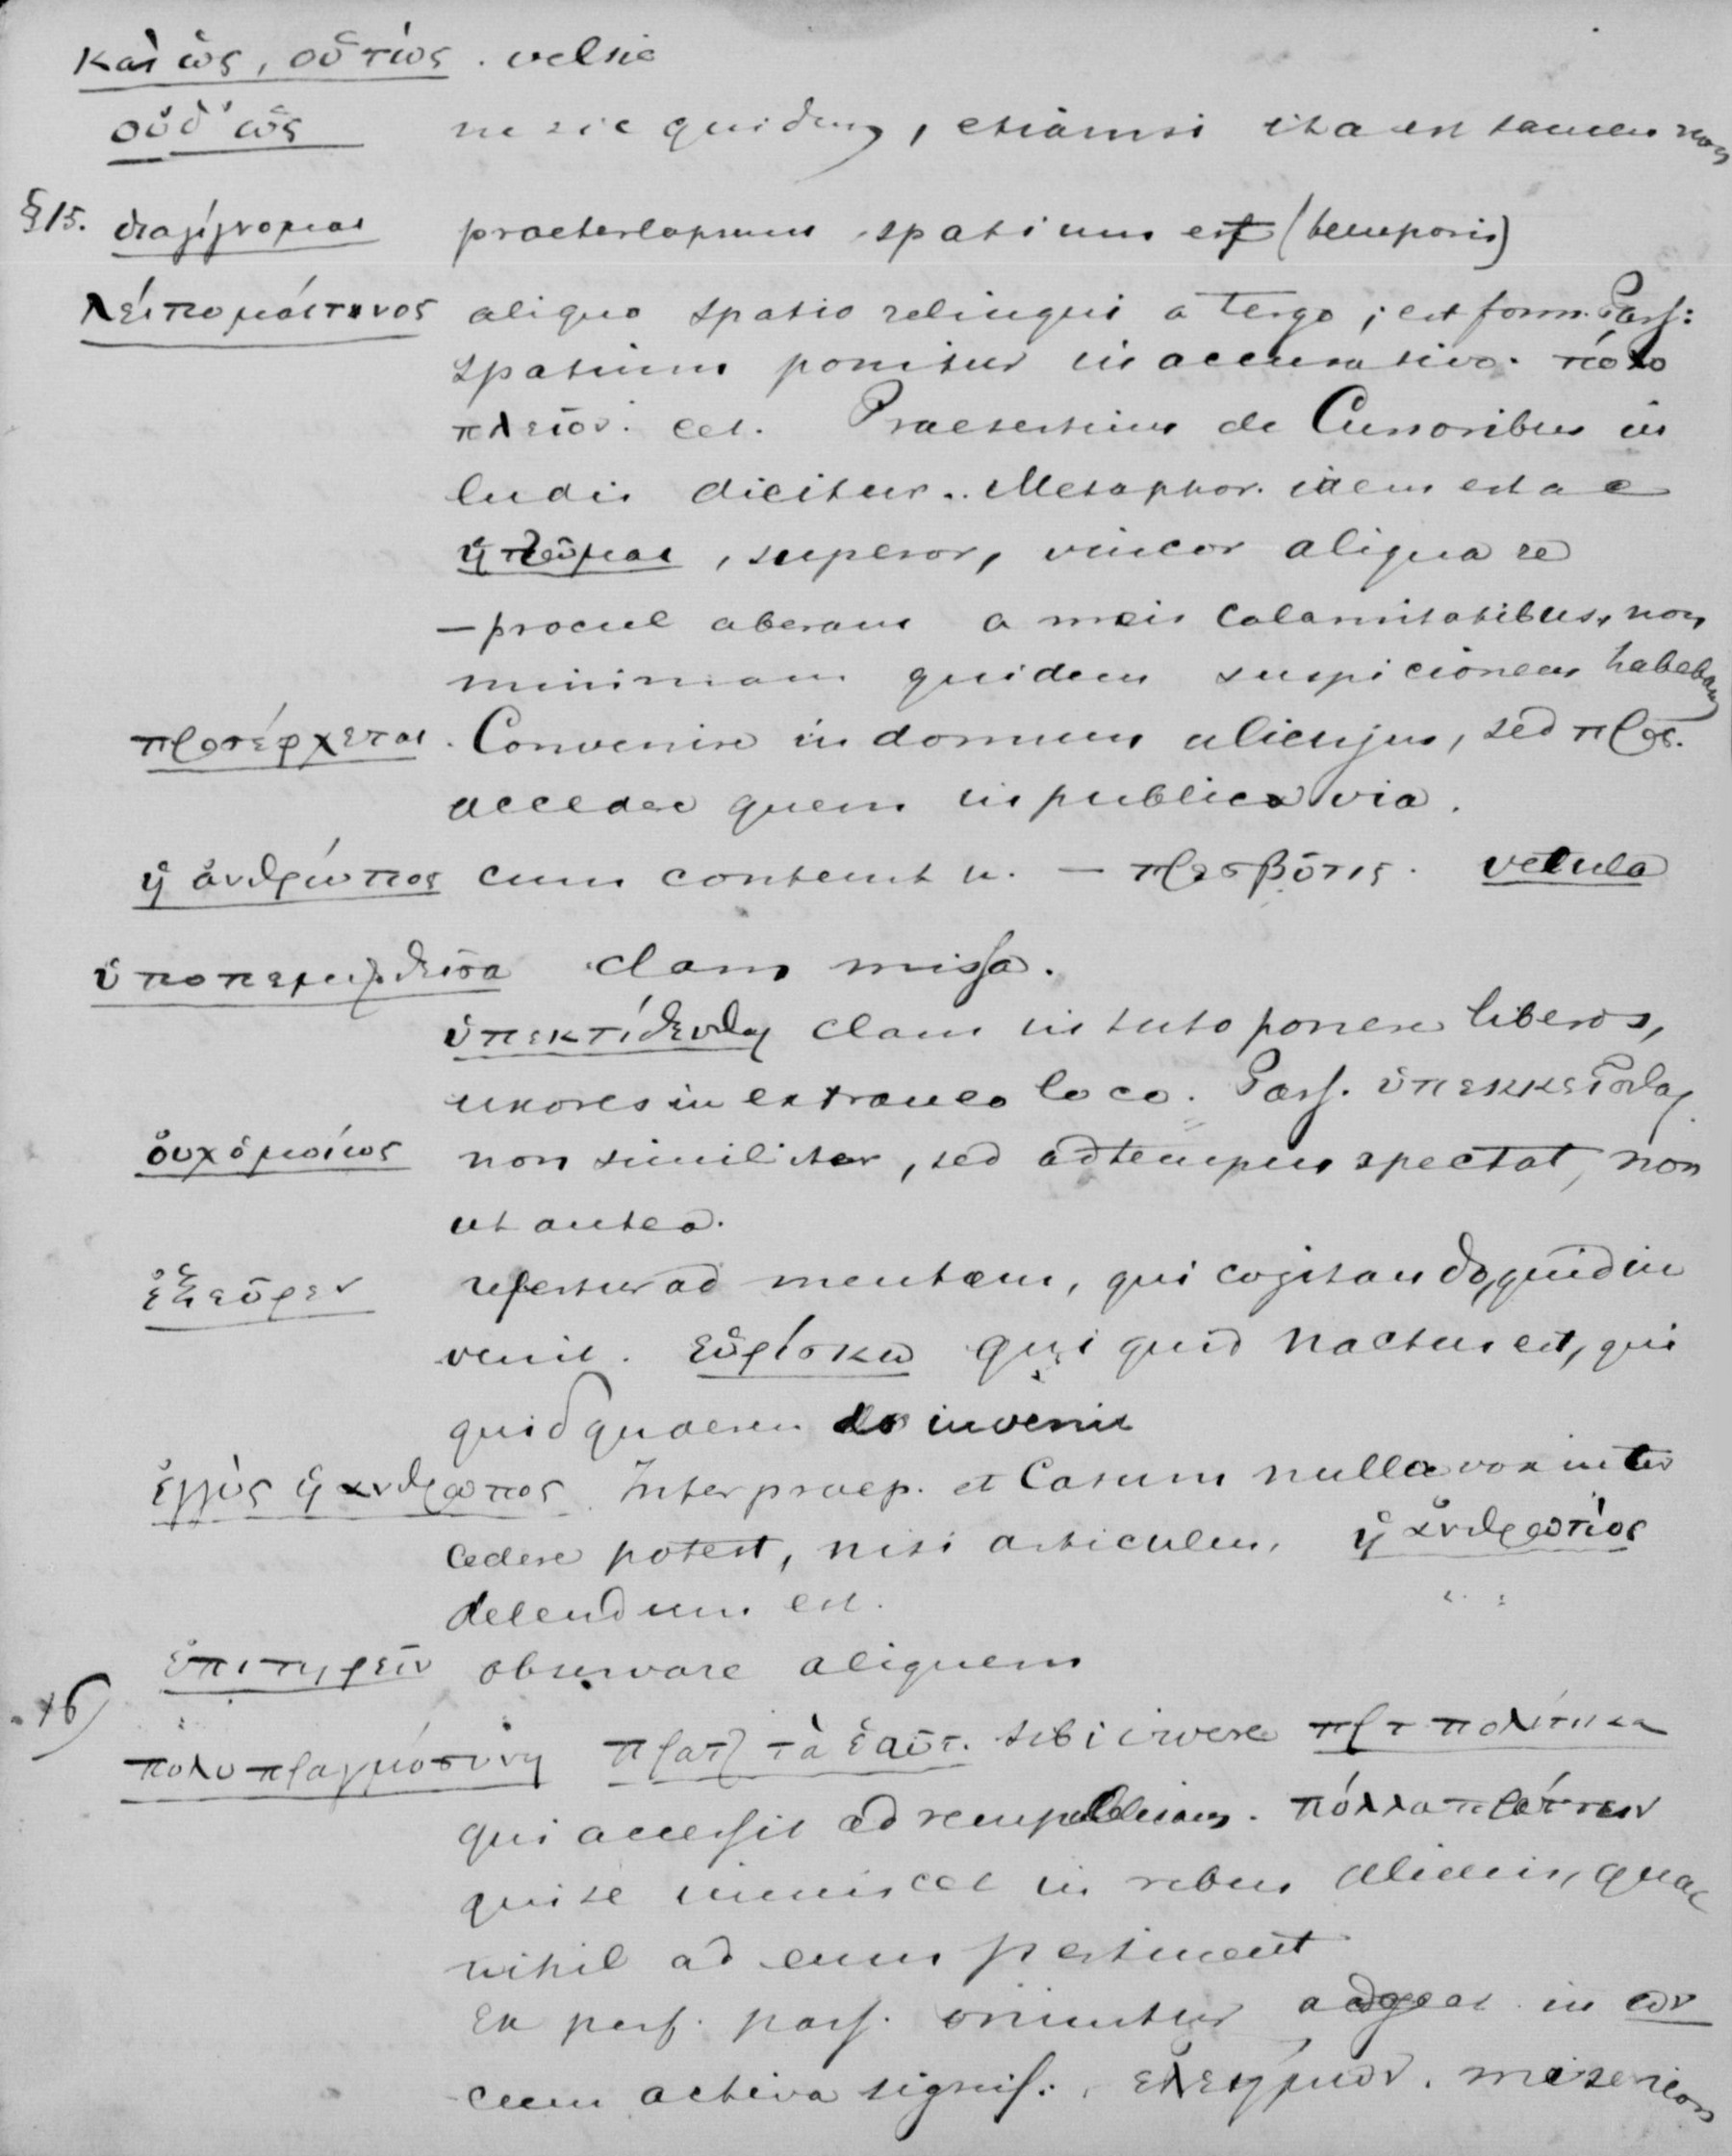 καὶ ὣς, οὕτως. vel sic
οὐδ' ὣς ne sic quidem, etiamsi ita est tamen non
§15. διαγίγνομαι praeterlapsum spatium est (temporis)
λείπομαί τινος aliquo spatio relinqui a tergo; est form. Pass:
spatium ponitur in accusativo.
πλεῖον. cet. Praesertim de Cursoribus in
ludis dicitur. Metaphor. idem est ac
ἡττῶμαι, superor, vincor aliqua re
— procul aberam a meis calamitatibus, non
minimam quidem suspicionem habebam
προσέρχεται. Convenire in domum alicujus, sed προς.
accedere quem in publica via.
ἡ ἄνθρωπος cum contemtu. — πρεσβῦτις. vetula
ὑποπεμφθεῖσα clam missa.
ὑπεκτίθεσθαι clam in tuto ponere liberos,
uxores in extraneo loco. Pass. ὑπεκκεῖσθαι
οὐχ ὁμοίως non similiter, sed ad tempus spectat, non
ut antea.
ἐξεῦρεν refertur ad mentem, qui cogitando, quid in
venit. εὑρίσκω qui quid nactus est, qui
quid quaerendo invenit
ἐγγὺς ἡ ἄνθρωπος. Inter praep. et Casum nulla vox inter
cedere potest, nisi articulus, ἡ ἄνθρωπος
delendum est.
ἐπιτηρεῖν observare aliquem
16) πολυπραγμοσύνη πραττ τὰ ἑαυτ. sibi vivere πρ τ πολιτικα
qui accessit ad rempublicam. πόλλα πράττειν
qui se immiscet in rebus alienis, quae
nihil ad eum pertinent
Ex perf. pass. oriuntur in ων
cum activa signif:. ἐλεήμων. misericors